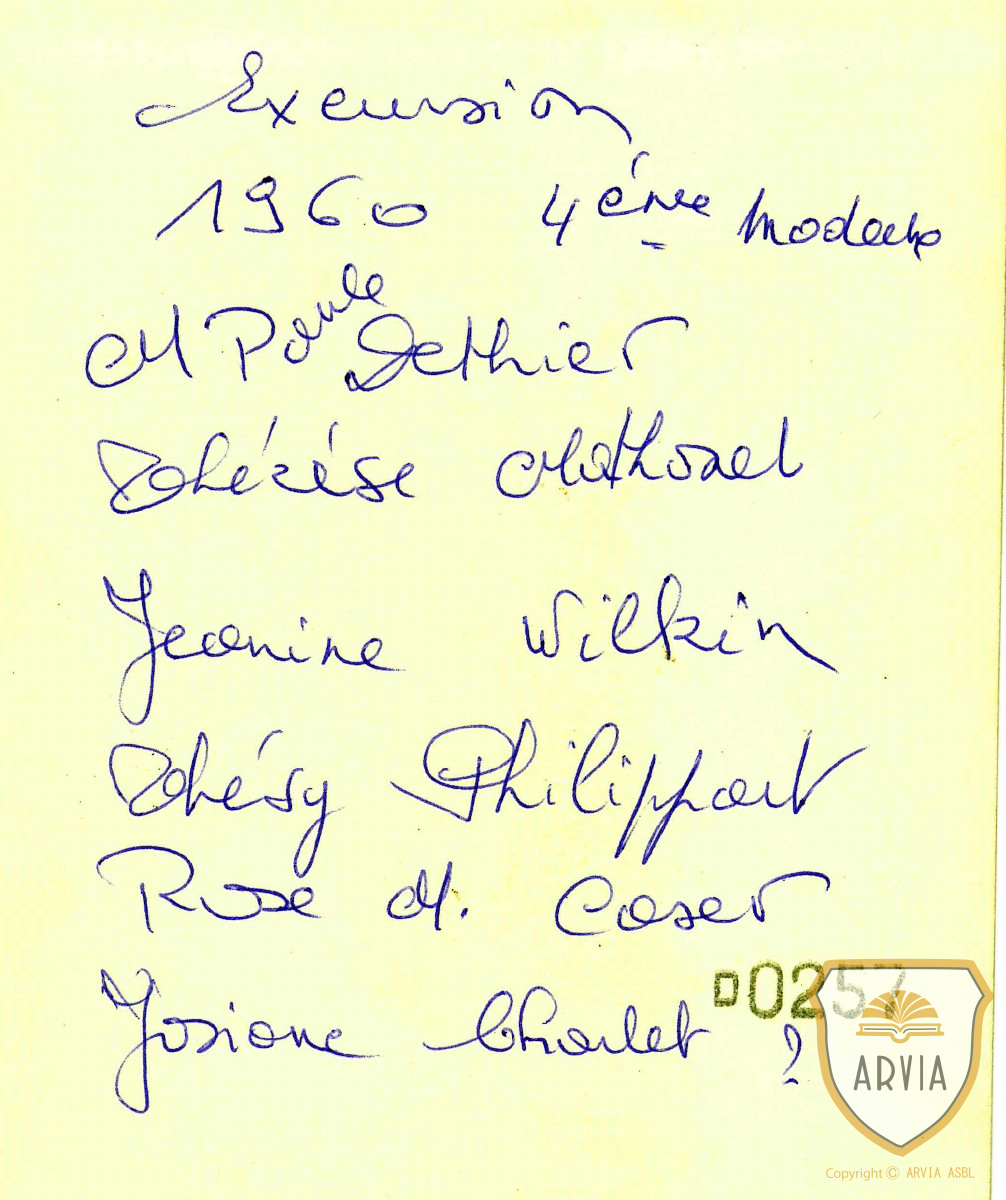 Excursion
1960 4ème
M Paule Dethier
Thérèse Mathonet
Jeanine Wilkin
Thésy Philippart
Rose M. Coser
Josiane Charlet ?
D0257
ARVIA
Copyright © ARVIA ASBL